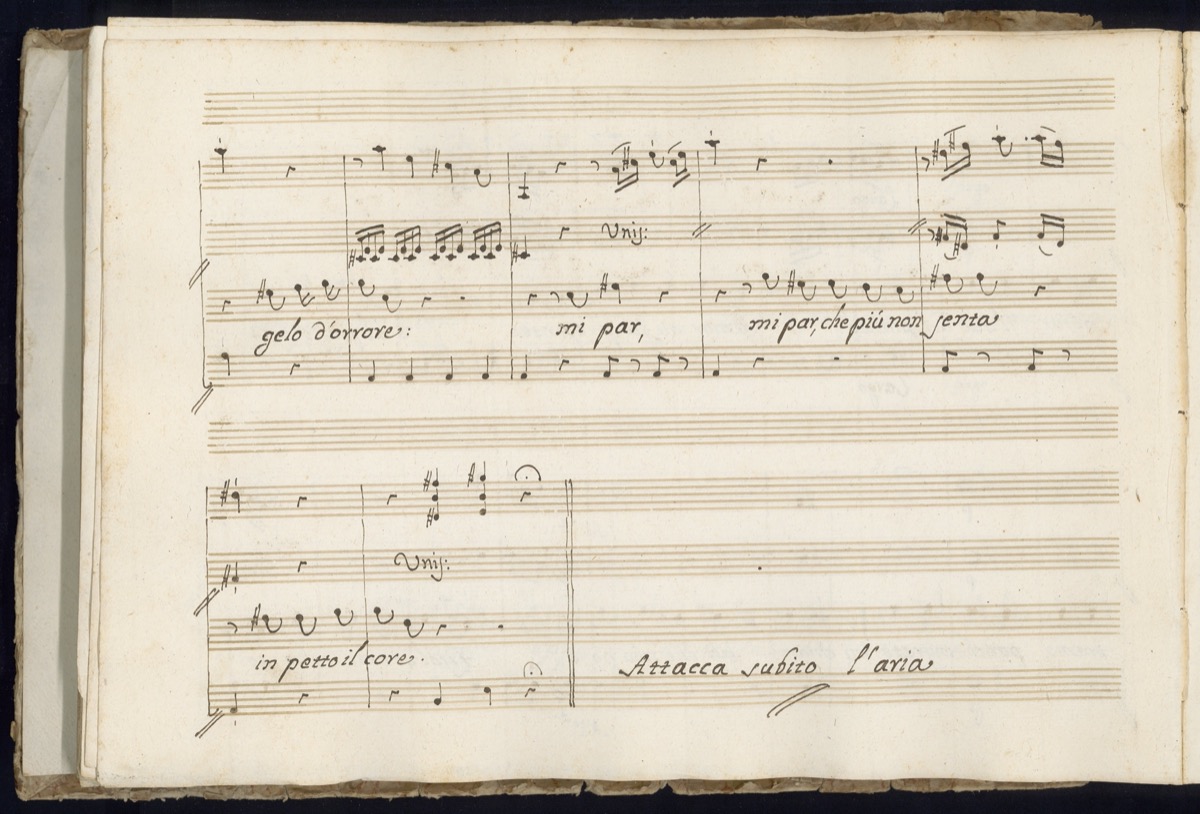 Unis:
gelo d'orrore: mi par, mi par, che più non senta
Unis:
in petto il core.
Attacca subito l'aria